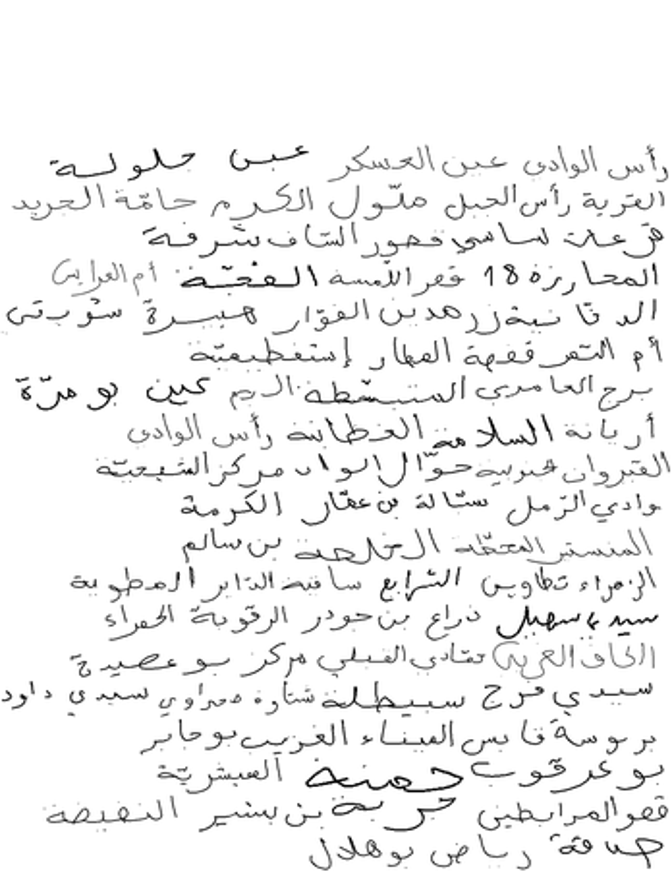 رأس الوادي عين العسكر عين جلولة
القرية رأس الجبل ملّول الكرم حامّة الجريد
قرعات لساسي قصور الساف شرفة
المحارزة 18 قصر اللمسة الفجّة أم العرايس
الدقانية زرمدين الفوّار هبيرة شوبرتي
أم التمر قفصة المطار إستفطيمية
برج العامري المنبسطة الريم عين بومرّة
أريانة السلامة العطاية رأس الوادي
القيروان جنوبية حوّال الواد مركز الشيحيّة
وادي الرّمل ستالة بن عمّار الكرمة
المنستير المحطّة الخليجة بن سالم
الزهراء تطاوين الشرايع ساقية الداير المطوية
سيدي سهيل ذراع بن جودر الرقوبة الحمراء
الحاف الغربي تفادي القبلي مركز بوعصيدة
سيدي فرج سبيطلة شنّاوة صحراوي سيدي داود
بربوسة قابس الميناء الغريب بوجابر
بوعرقوب جمنة المبشريّة
قصر المرابطين خربة بن بشير النفيضة
حدقة رياض بوهلال